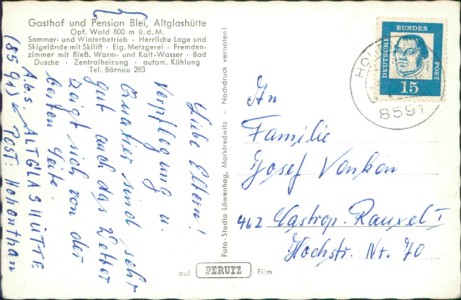 Gasthof und Pension Blei, Altglashütte
Opf. Wald 800 m ü. d. M.
Sommer- und Winterbetrieb - Herrliche Lage und
Skigelände mit Skilift - Eig. Metzgerei - Fremden-
zimmer mit fließ. Warm- und Kalt-Wasser - Bad
Dusche - Zentralheizung - autom. Kühlung
Tel. Bärnau 283
Liebe Eltern!
Verpflegung u.
Quatier sind sehr
gut auch das Wetter
zeigt sich von der
besten Seite.
Abs. ALTGLASHÜTTE
(8591) Post: Hohenthan
Foto-Studio Löwenhag, Marktredwitz - Nachdruck verboten!
DEUTSCHE
BUNDES
POST
15
HO
8591
An
Familie
Josef
462 Castrop-Rauxel I
Hochstr. Nr. 70
auf PERUTZ Film